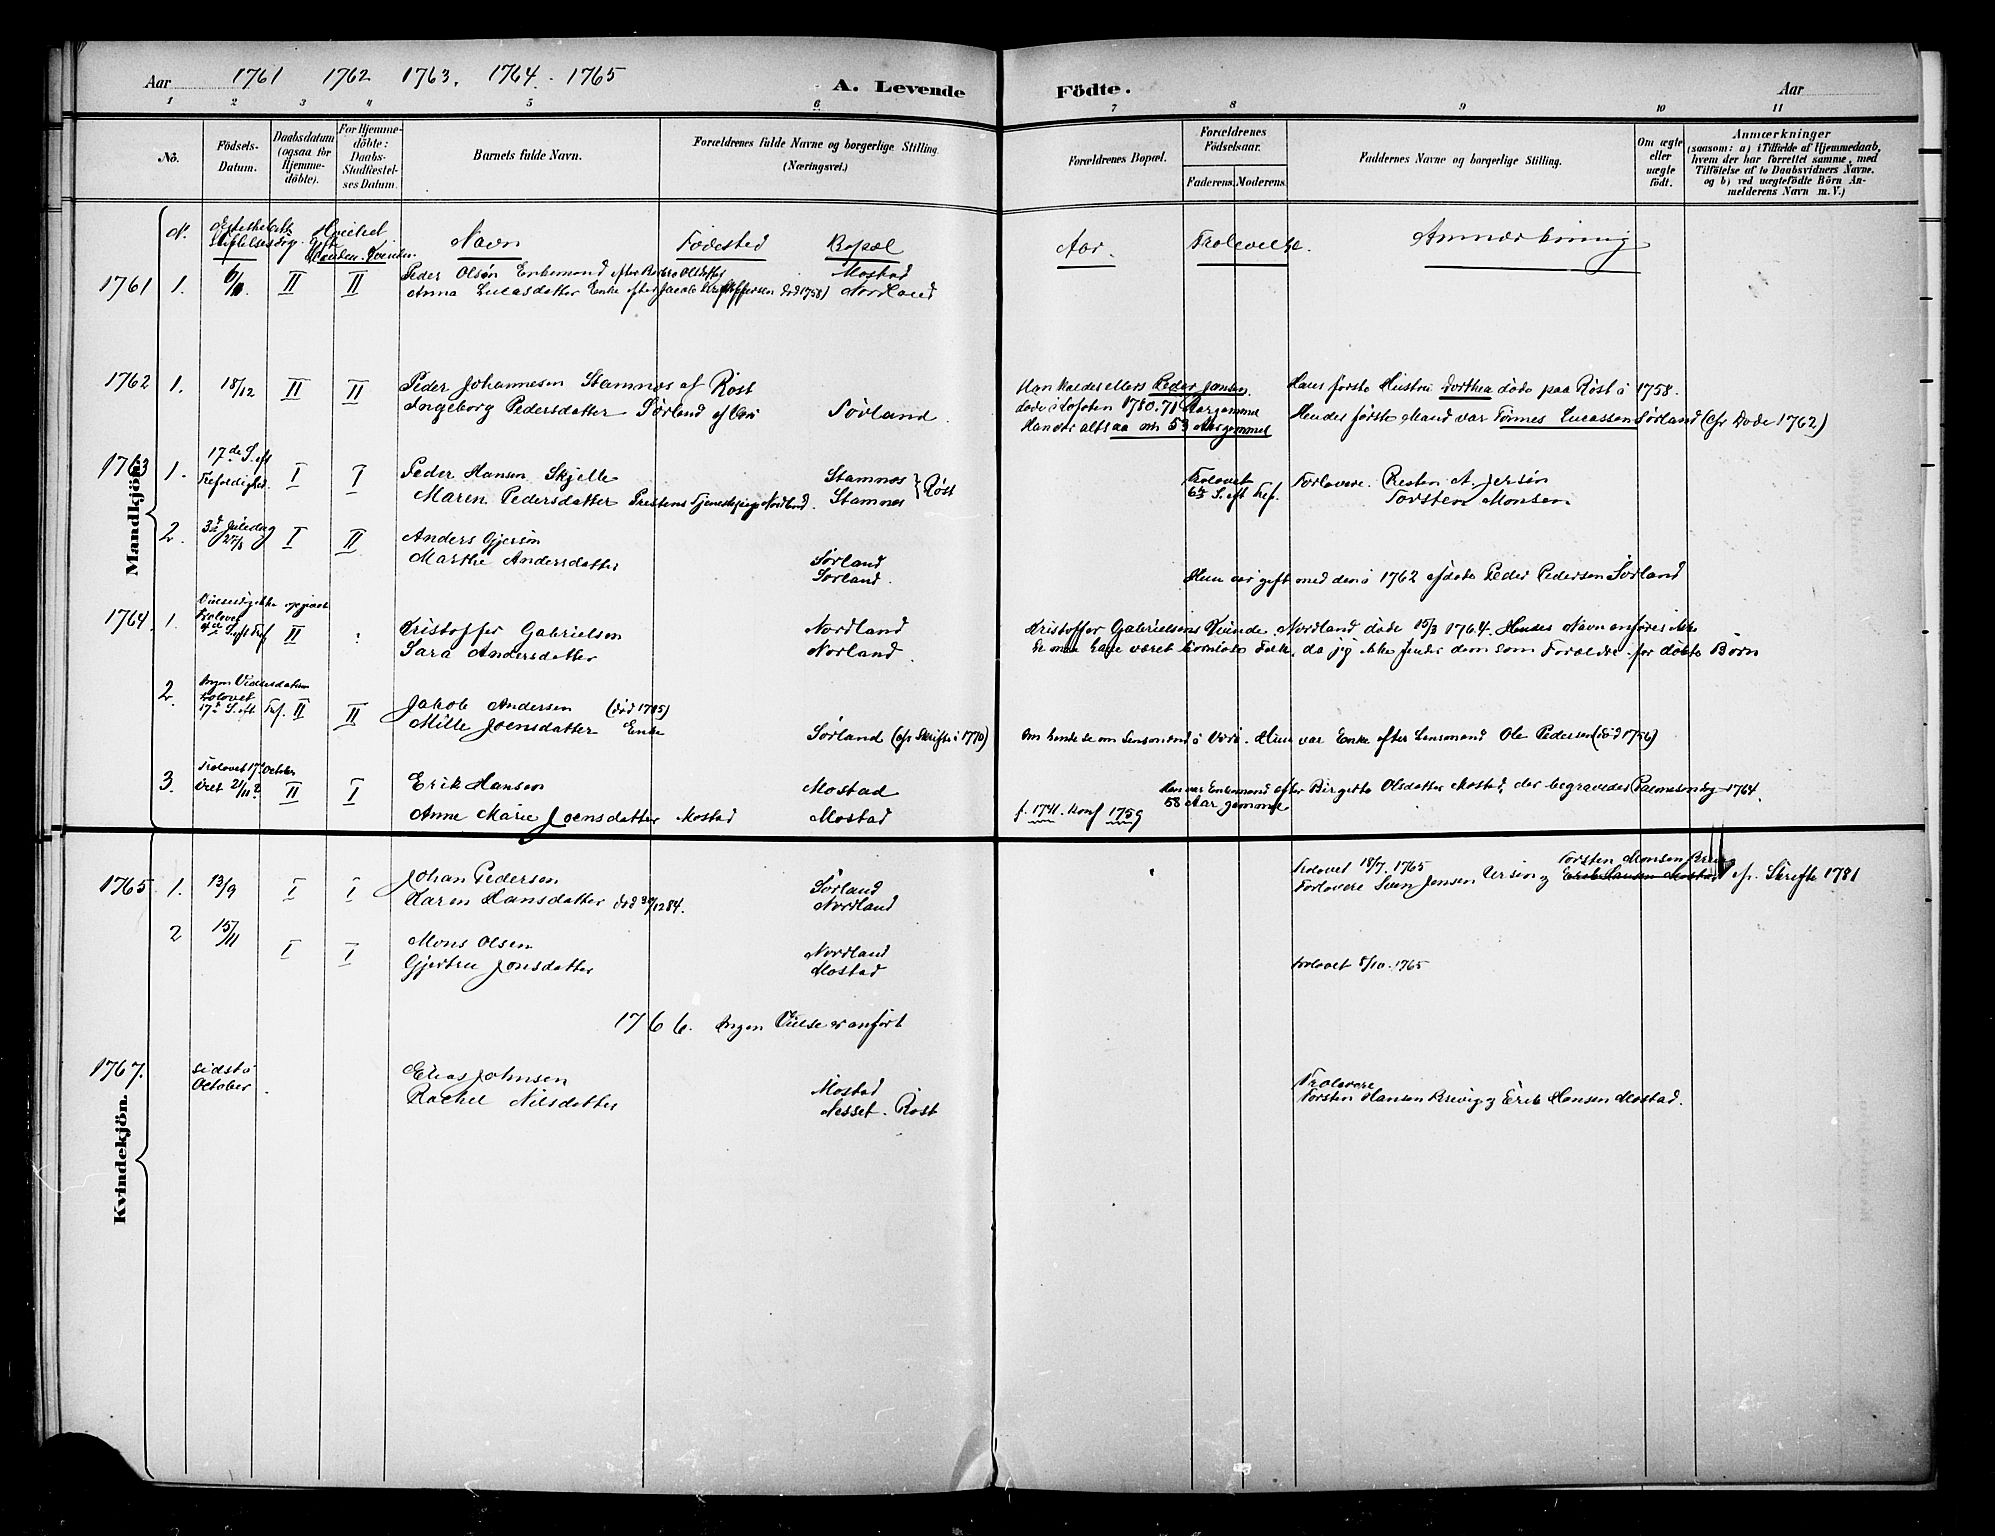 Aar 1761 1762 1763. 1764. 1765
A. Levende Födte.
Aar
1 2 3 4 5 6 7 8 9 10 11
No.
Födsels-Datum.
Daabsdatum (ogsaa for Hjemmedöbte).
For Hjemmedöbte: Daabs-Stadfæstelses Datum.
Barnets fulde Navn.
Forældrenes fulde Navne og borgerlige Stilling (Næringsvei.)
Forældrenes Bopæl.
Forældrenes Födselsaar.
Faderens. Moderens.
Faddernes Navne og borgerlige Stilling.
Om ægte eller uægte födt.
Anmærkninger
(saasom: a) i Tilfælde af Hjemmedaab, hvem der har forrettet samme, med Tilföielse af to Daabsvidners Navne, og b) ved uægtefödte Börn Anmelderens Navn m. V.)
Mandkjön.
Kvindekjön.
N. Navn Födested Bopæl Aar Trolovelse. Anmærkning
1761 1. II II Peder Olsön Enkemand efter Mostad
Anna Lucasdatter Enke efter Jacob Kristoffersen död 1758) Nordland
1762 1. 18/12 II II Peder Johannesen Stamnes af Röst
Han kaldes ellers Peder Jansen. Hans förste Hustru Dorthea döde paa Röst i 1758.
Ingeborg Pedersdatter Sörland af Værö Sörland.
döde i Lofoten 1780. 71 Aar gammel Hendes förste Mand var Tönnes Lucassen Sörland (cfr Döde 1762)
Han var altsaa om 53 Aar gammel
1763 1. 17de S. eft Trefoldighed. I I Peder Hansen Skjelle Stamnes } Röst
Trolovet Forlovere. Presten A. Jersön
Maren Pedersdatter Prestens Tjenestepige Nordland. Stamnes
6te S. eft Tref. Torsten Monsen
2. 3die Juledag I II Anders Gjersön Sörland
Marthe Andersdatter Sörland.
Hun var gift med den i 1762 afdöde Peder Pedersen Sörland
1764. 1. Vielsesdag ikke opgivet Trolovet 4de S eft Tref II Kristoffer Gabrielsen Nordland
Kristoffer Gabrielsens Kvinde. Nordland döde 15/3 1764. Hendes Navn anföres ikke
Sara Andersdatter Norland.
De maa have været barnlöse Folk, da jeg ikke finder dem som Forældre for döbte Börn
2. Ingen Vielsesdatum trolovet 17de S. eft Tref. II II Jakob Andersen (död 1785)
Mille Joensdatter Enke Sörland (cfr Skifte i 1770)
Om hende se om Lensmænd i Værö. Hun var Enke efter Lensmand Ole Pedersen (död 1756)
3. Trolovet 17 October viet 21/11? II I Erik Hansen Mostad
Han var Enkemand efter Birgette Olsdatter Mostad, der begravedes Palmesöndag 1764.
58 Aar gammel
Anne Marie Joensdatter Mostad Mostad
f. 1741. Konf 1759
1765. 1. 13/9 I I Johan Pedersen Sörland
Trolovet 18/7. 1765 Torsten Monsen Brevig
Karen Hansdatter död 84. Nordland
Forlovere Sven Jensen Ursin og Erik Hansen Mostad cfr. Skifte 1781
2 15/11 I I Mons Olsen Nordland
Gjertru Jonsdatter Mostad
trolovet 8/10. 1765
1766. Ingen Vielse er anfört
1767. sidst i October. Elias Johnsen Mostad
Rachel Nilsdatter Nesset. Röst
Trolovere
Torsten Hansen Brevig og Erik Hansen Mostad.